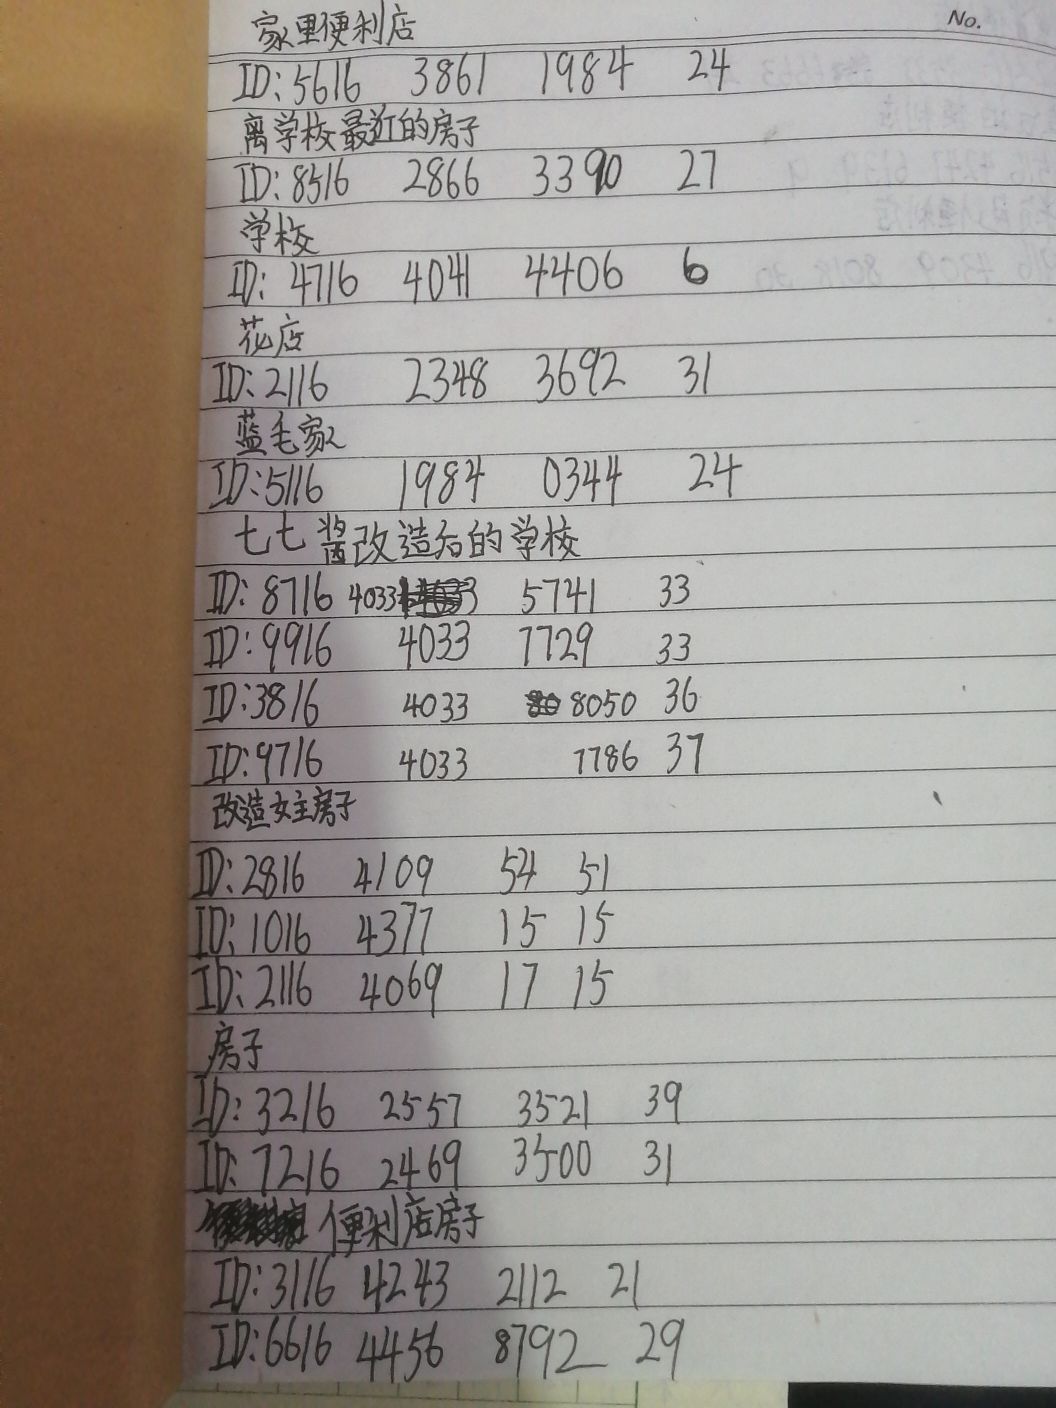 No.
家里便利店
ID:5616 3861 1984 24
离学校最近的房子
ID:8516 2866 3390 27
学校
ID:4716 4041 4406 6
花店
ID:2116 2348 3692 31
蓝毛家
ID:5116 1984 0344 24
七七酱改造后的学校
ID:8716 4033 5741 33
ID:9916 4033 7729 33
ID:3816 4033 8050 36
ID:9716 4033 7786 37
改造女主房子
ID:2816 4109 54 51
ID:1016 4377 15 15
ID:2116 4069 17 15
房子
ID:3216 2557 3521 39
ID:7216 2469 3500 31
便利店房子
ID:3116 4243 2112 21
ID:6616 4456 8792 29